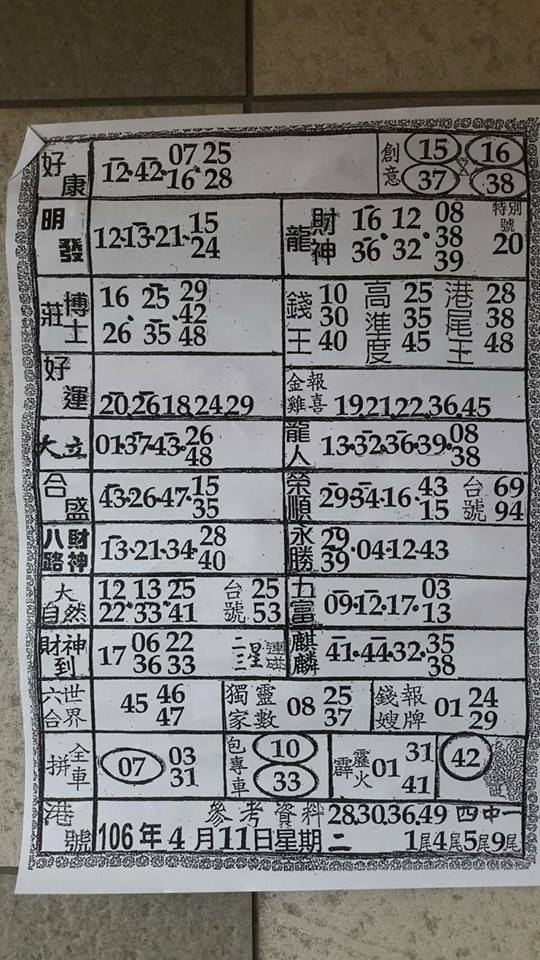 好康 12.42. 07 25 創意 15 16
16. 28 37 38
明發 12.13.21. 15 龍財神 16. 12. 08 特別號
24 36. 32. 38 20
39
莊博士 16 25 29 錢王 10 高進度 25 港尾王 28
42 30 35 38
26 35 48 40 45 48
好運 20.26.18.24.29 金雞報喜 19.21.22.36.45
大立 01.37.43. 26 龍人 13.32.36.39. 08
48 38
合盛 43.26.47. 15 榮順 29.34.16. 43 台號 69
35 15 94
八路財神 13.21.34. 28 永勝 29 .04.12.43
40 39
大自然 12 13 25 台號 25 五富 09.12.17. 03
22 33 41 53 13
財神到 17 06 22 二三星連碰 麒麟 41.44.32. 35
36 33 38
六台世界 45 46 獨家靈數 08 25 錢嫂報牌 01 24
47 37 29
拼全車 07 03 包專車 10 霹靂火 01 31 42
31 33 41
港號 參考資料 28.30.36.49 四中一
106年4月11日星期二 1尾4尾5尾9尾